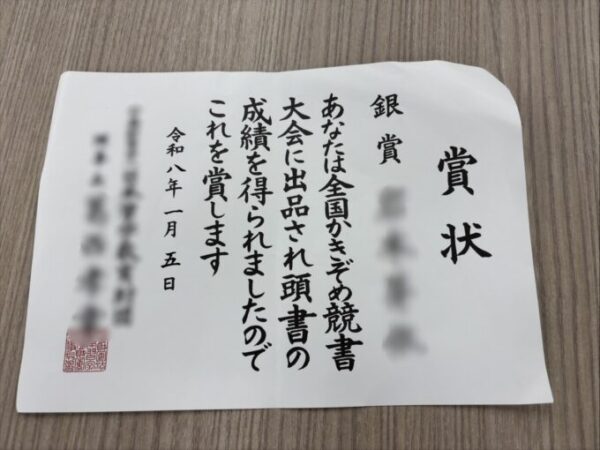 賞状
銀賞
あなたは全国かきぞめ競書
大会に出品され頭書の
成績を得られましたので
これを賞します
令和八年一月五日